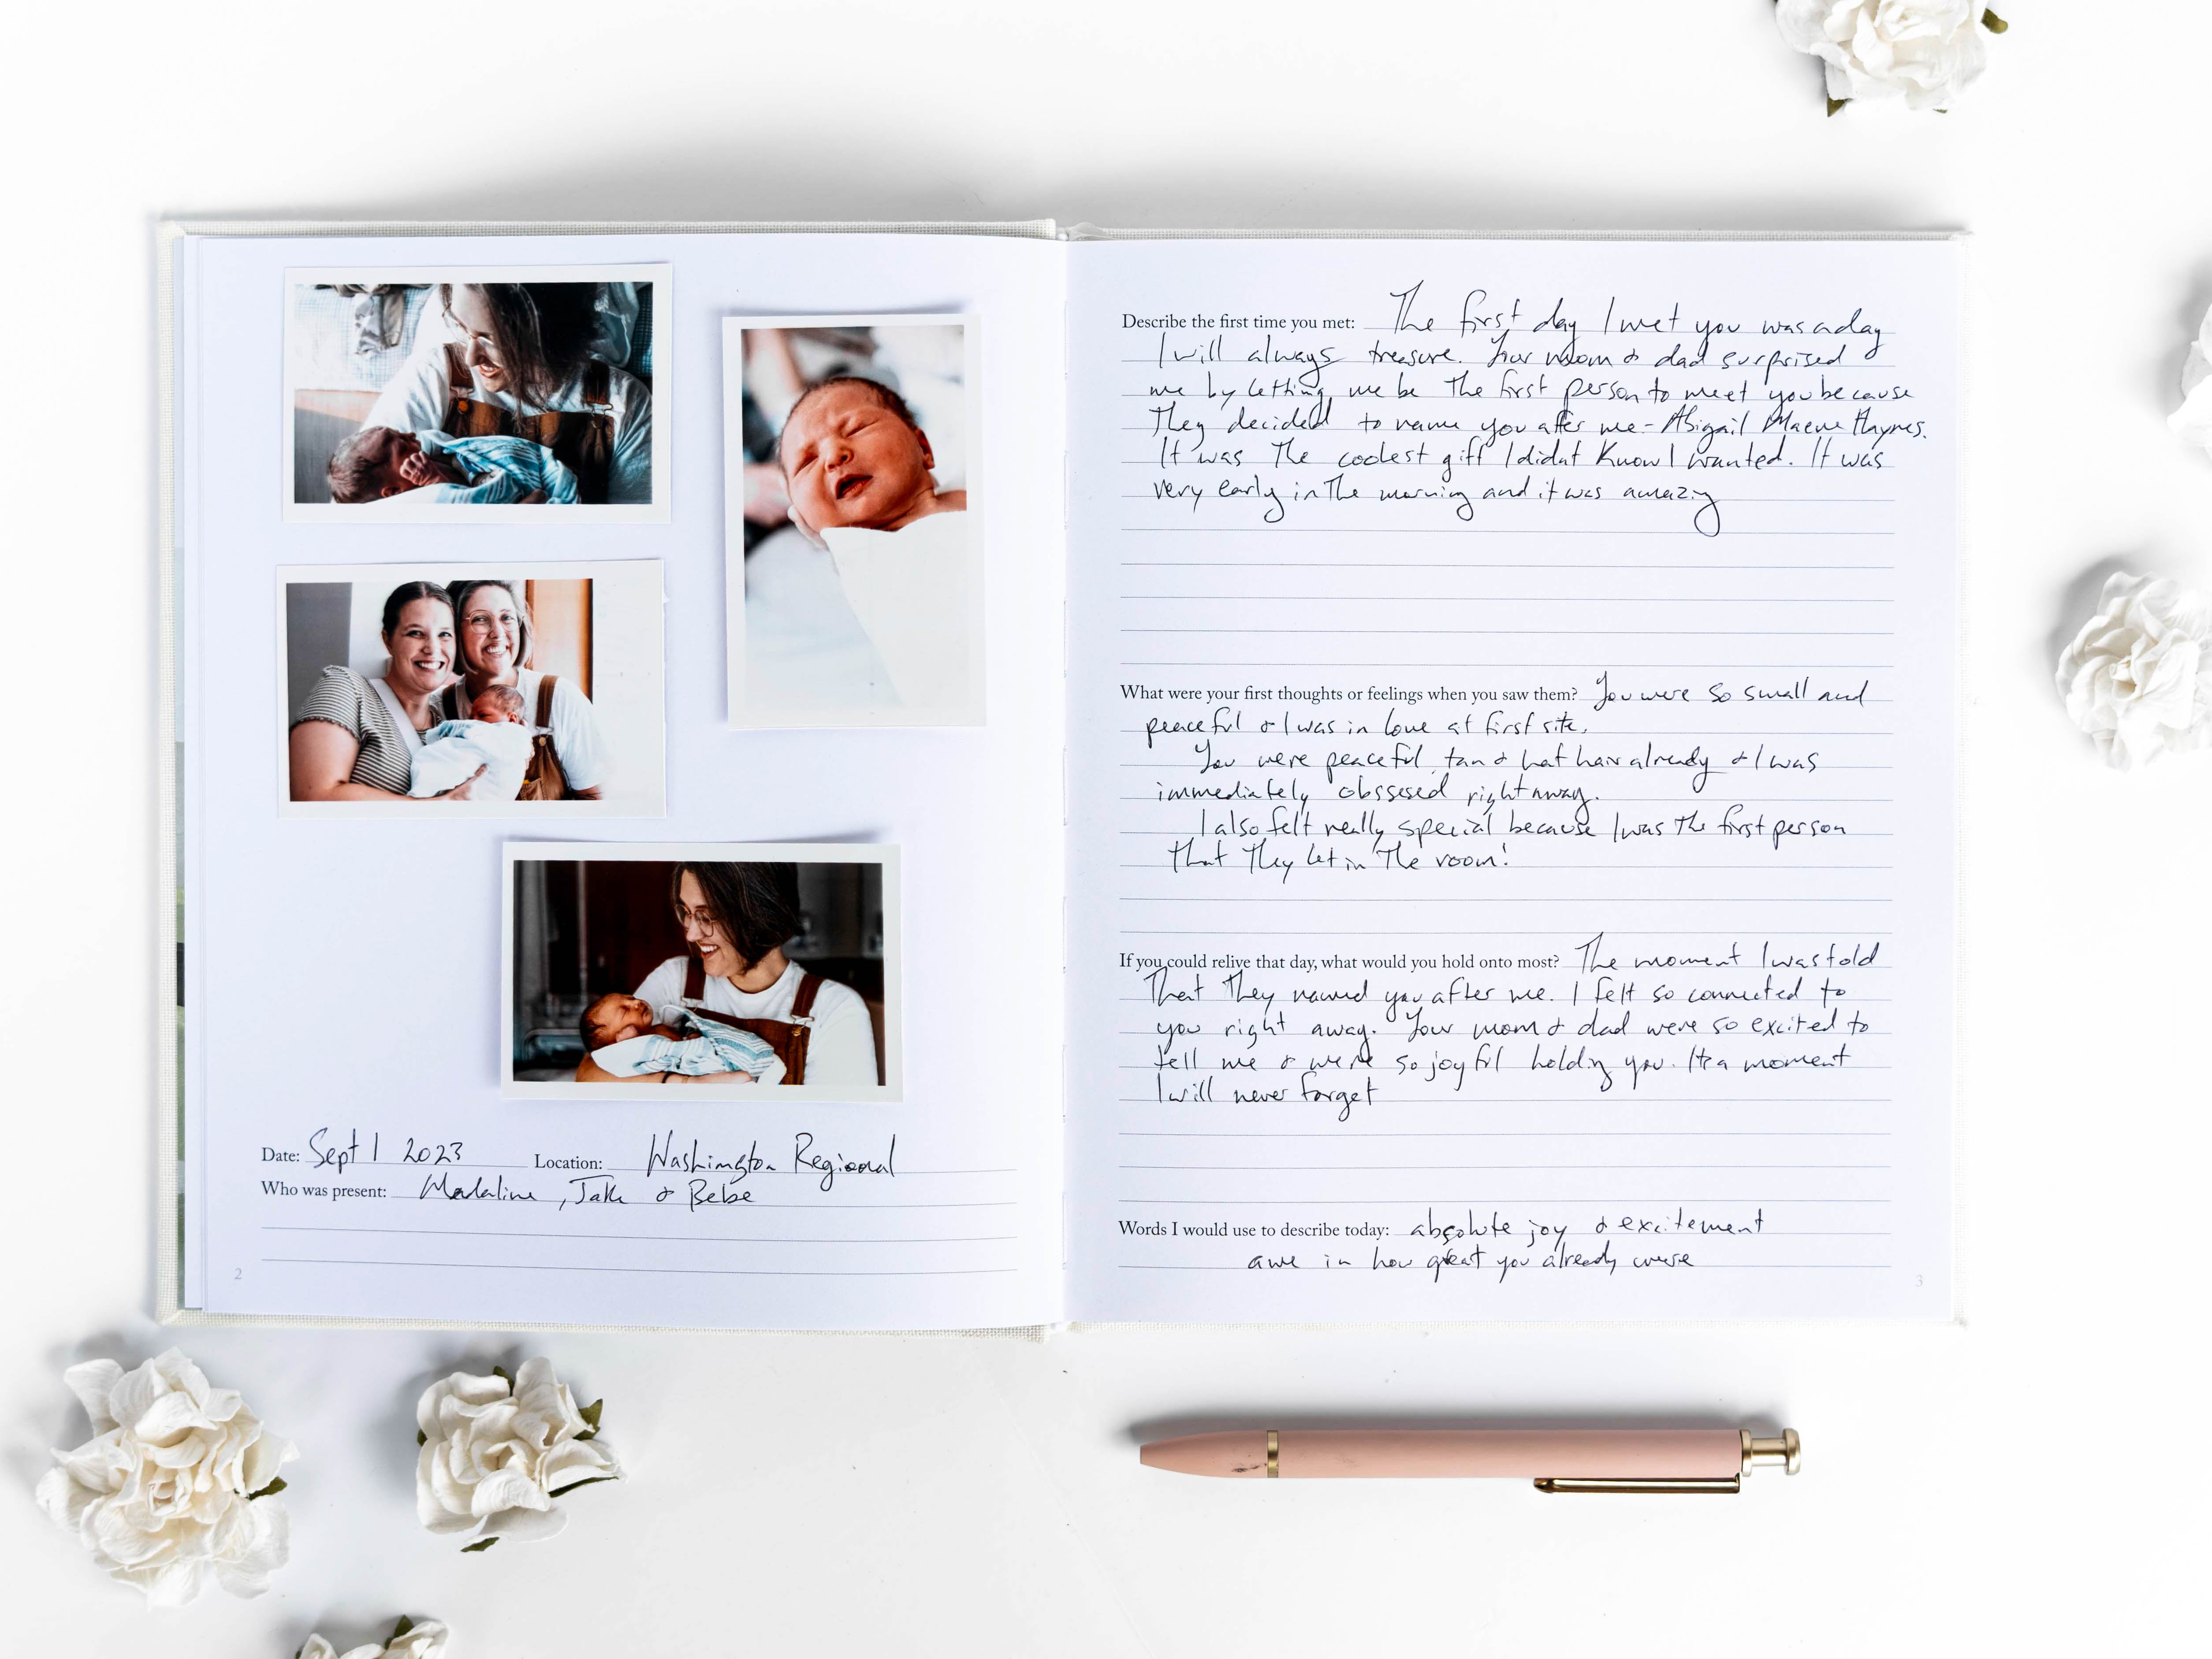 Date: Sept 1 2023 Location: Washington Regional
Who was present: Madaline, Jake & Bebe
2
Describe the first time you met: The first day I met you was a day
I will always treasure. Your mom & dad surprised
me by letting me be the first person to meet you because
They decided to name you after me - Abigail Maeve Haynes.
It was the coolest gift I didnt know I wanted. It was
very early in the morning and it was amazing
What were your first thoughts or feelings when you saw them? You were so small and
peaceful & I was in love at first site.
You were peaceful, tan & hat hair already & I was
immediately obssesed right away.
I also felt really special because I was the first person
that they let in the room!
If you could relive that day, what would you hold onto most? The moment I was told
That they named you after me. I felt so connected to
you right away. Your mom & dad were so excited to
tell me & were so joyful holding you. Its a moment
I will never forget
Words I would use to describe today: absolute joy & excitement
awe in how great you already were
3